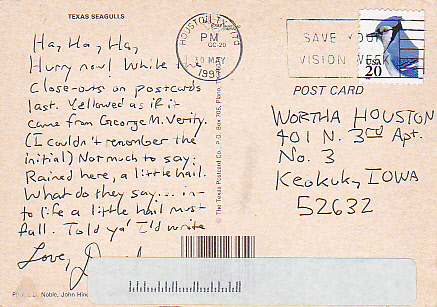 TEXAS SEAGULLS
Ha, Ha, Ha,
Hurry now! While the
Close-outs on postcards
last. Yellowed as if it
came from George M. Verity.
(I couldn't remember the
initial) Not much to say:
Rained here, a little hail.
What do they say... in-
to life a little hail must
fall. Told ya' I'd write
Love,
HOUSTON, TX
PM
10 MAY
SAVE YOUR
VISION WEEK
USA
20
POST CARD
WORTHA HOUSTON
401 N. 3rd Apt.
No. 3
Keokuk, IOWA
52632
The Texas Postcard Co., P.O. Box 708, Plano,
Noble, John